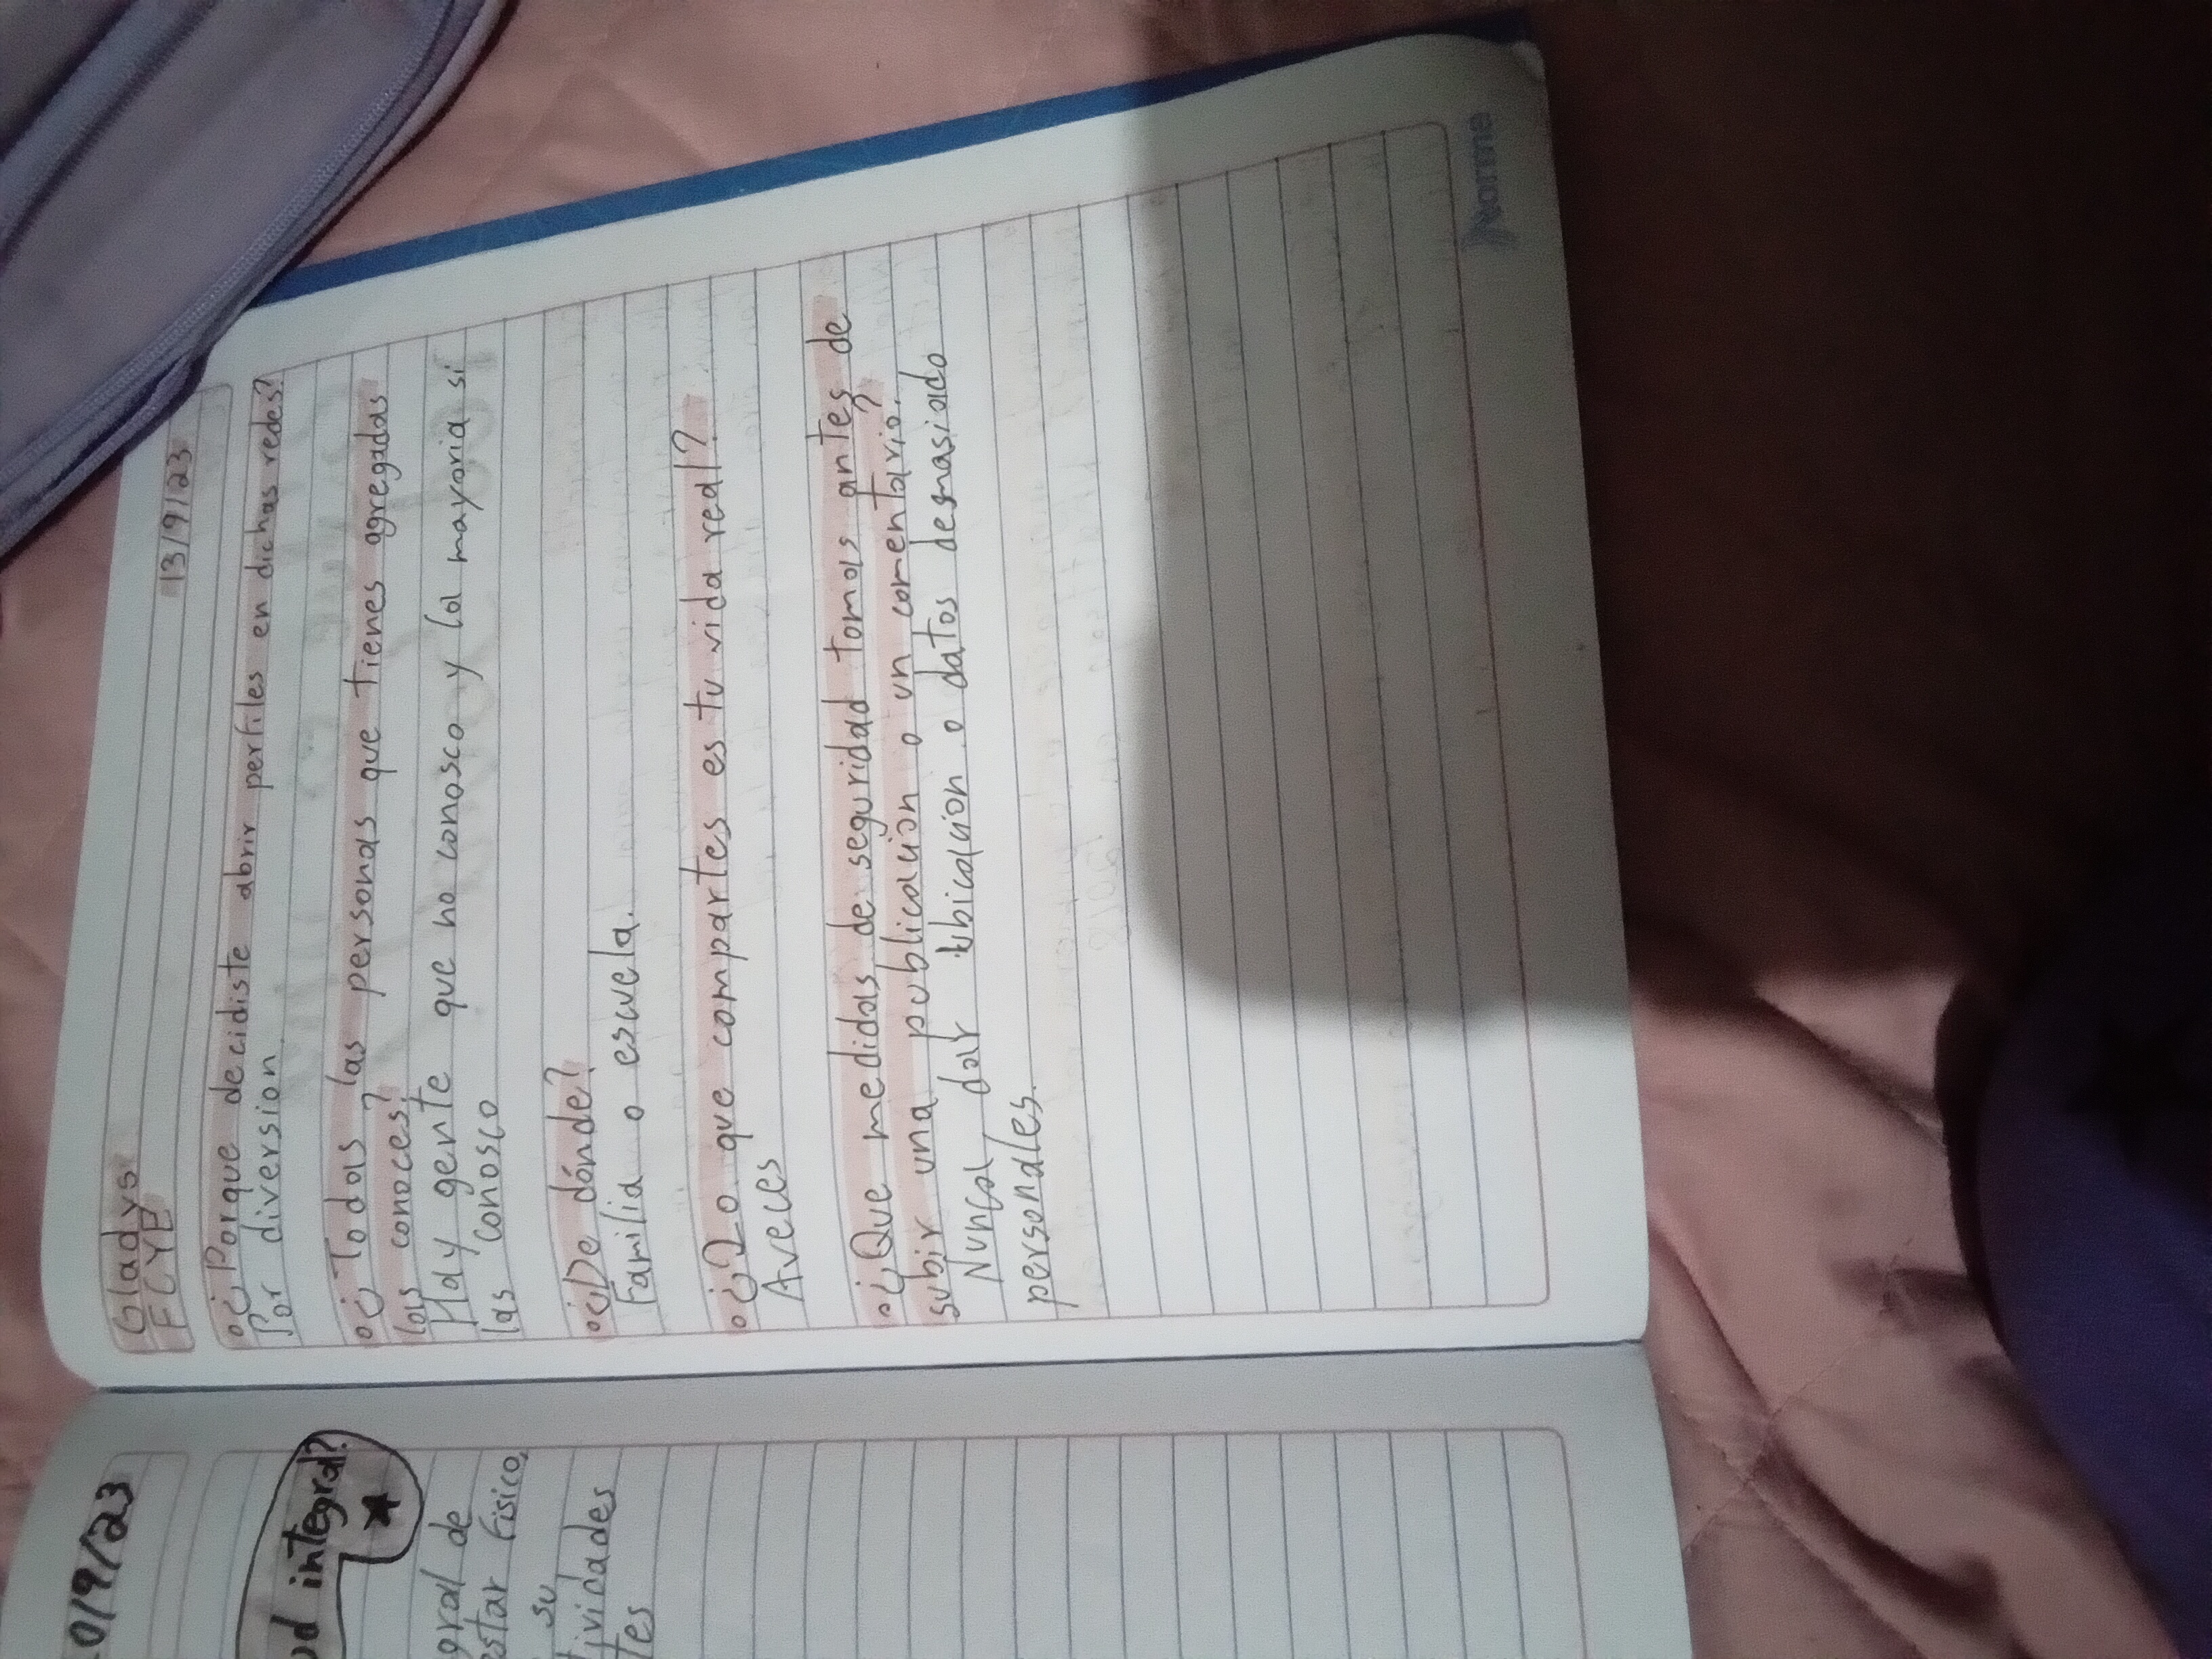 0/9/23
ud integral?
gral de
estar Fisico,
su
tividades
tes
Gladys
FCYE
13/9/23
°¿Porque decidiste abrir perfiles en dichas redes?
Por diversion.
°¿Todas las personas que tienes agregadas
las conoces?
Hay gente que no conosco y la mayoria si
las conosco
°¿De dónde?
Familia o escuela.
°¿Lo que compartes es tu vida real?
Aveces
°¿Que medidas de seguridad tomas antes de
subir una publicación o un comentario?
Nunca dar ubicacion o datos demasiado
personales.
Norma